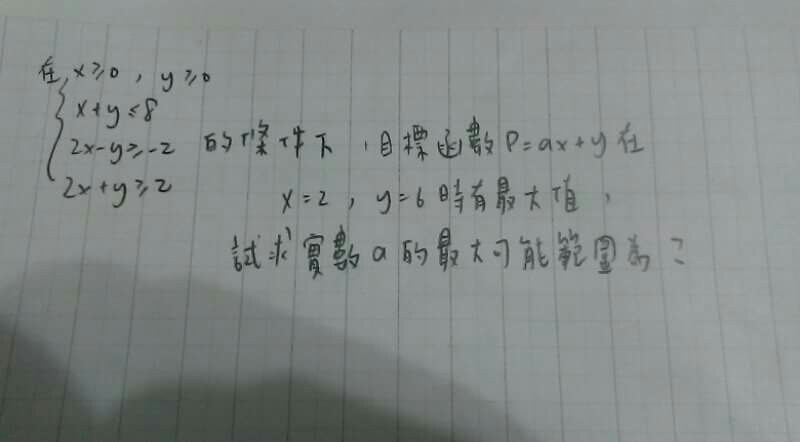 在 x≥0 , y≥0
x+y≤8
2x-y≥-2 的條件下，目標函數P=ax+y在
2x+y≥2
x=2 , y=6時有最大值，
試求實數a的最大可能範圍為？